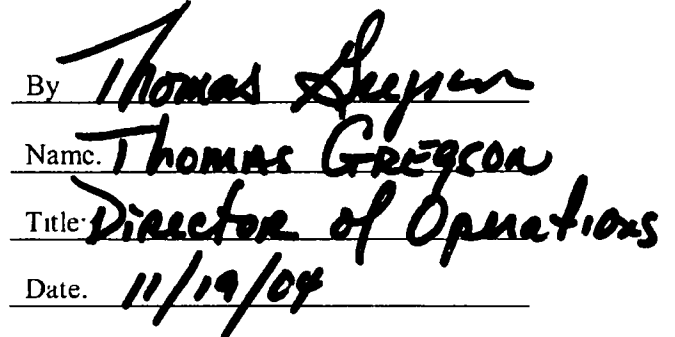 By Thomas Gregson
Name. Thomas Gregson
Title. Director of Operations
Date. 11/19/04